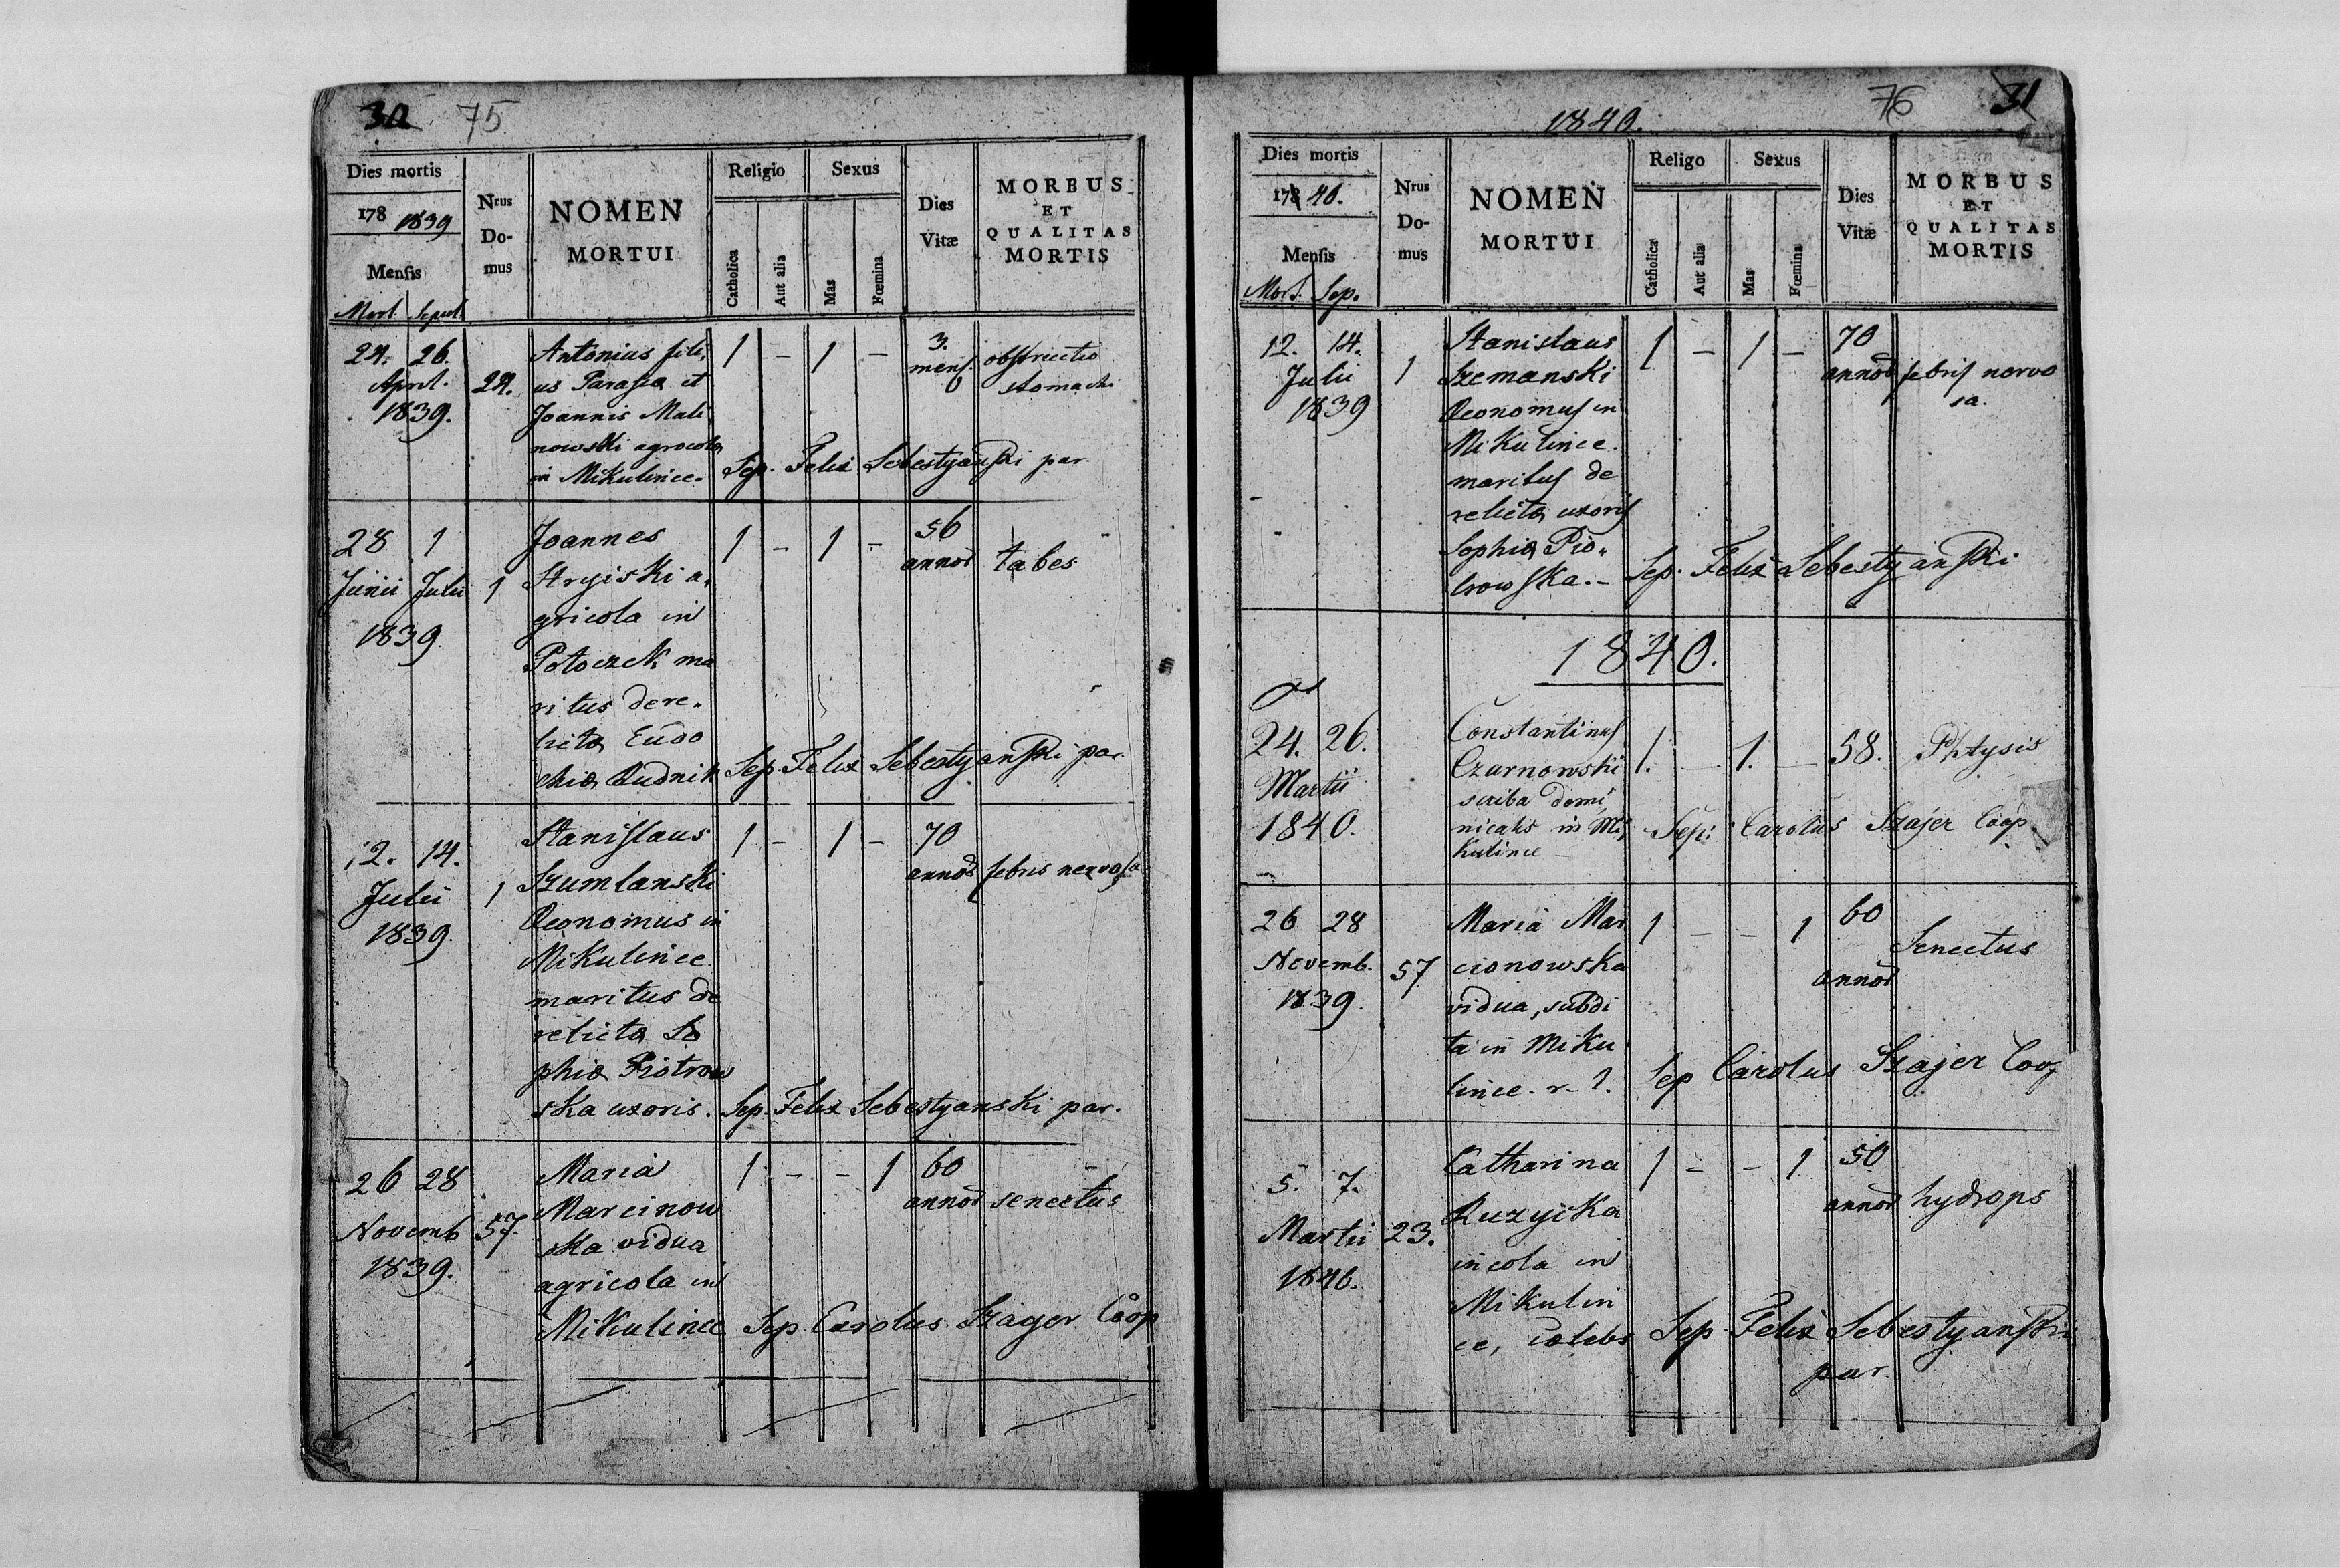 30 75
Dies mortis
178 1839
Mensis
Mort. Sepul.
Nrus
Do-
mus
NOMEN
MORTUI
Religio
Catholica
Aut alia
Sexus
Mas
Fœmina
Dies
Vitæ
MORBUS
ET
QUALITAS
MORTIS
24. 26.
April.
1839.
Antonius fili,
us Parasca et
Joannis Mali
nowski agricola
in Mikulince.
1 - 1 -
3.
mens.
obstructio
stomachi
Sep. Felix Sebestyanski par.
28 1
Junii Julii 1
1839.
Joannes
Stryiski a,
gricola in
Potoczek ma
ritus dere„
licta Eudo
chia Rudnik
1 - 1 -
56
annor
tabes
Sep Felix Sebestyanski par.
12. 14.
Julii 1
1839.
Stanislaus
Szumlanski
Oeconomus in
Mikulince
maritus de
relicta So
phia Piotrow
ska uxoris.
1 - 1 -
70
annor febris nervosa
Sep. Felix Sebestyanski par.
26 28
Novemb 57.
1839.
Maria
Marcinow
ska vidua
agricola in
Mikulince
1 - - 1
60
annor senectus
Sep. Carolus Szajer Coop
1840.
76 31
Dies mortis
178 40.
Mensis
Mort. Sep.
Nrus
Do-
mus
NOMEN
MORTUI
Religo
Catholicæ
Aut alia
Sexus
Mas
Fœmina
Dies
Vitæ
MORBUS
ET
QUALITAS
MORTIS
12. 14.
Julii 1
1839
Stanislaus
Szemanski
Oeconomus in
Mikulince.
maritus de
relicta uxoris
Sophia Pio„
trowska.-
1 - 1 -
70
annor febris nervo
sa.
Sep. Felix Sebestyanski
1840.
24. 26.
Martii
1840.
Constantinus
Czarnowski
scriba domi
nicalis in Mi
kulince
1. - 1. -
58. Phtysis
Sep: Carolus Szajer Coop.
26 28
Novemb. 57
1839.
Maria Mar
cionowska
vidua, subdi
ta in Miku
lince. r. l.
1 - - 1
60
annor
Senectus
Sep Carolus Szajer Coop
5. 7.
Martii 23.
1840.
Catharina
Ruzyika
incola in
Mikulin
ce, cælebs
1 - - 1
50
annor hydrops
Sep Felix Sebestyanski
par.